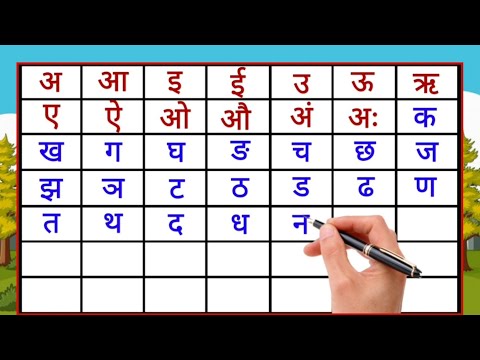 अ आ इ ई उ ऊ ऋ
ए ऐ ओ औ अं अः क
ख ग घ ङ च छ ज
झ ञ ट ठ ड ढ ण
त थ द ध न